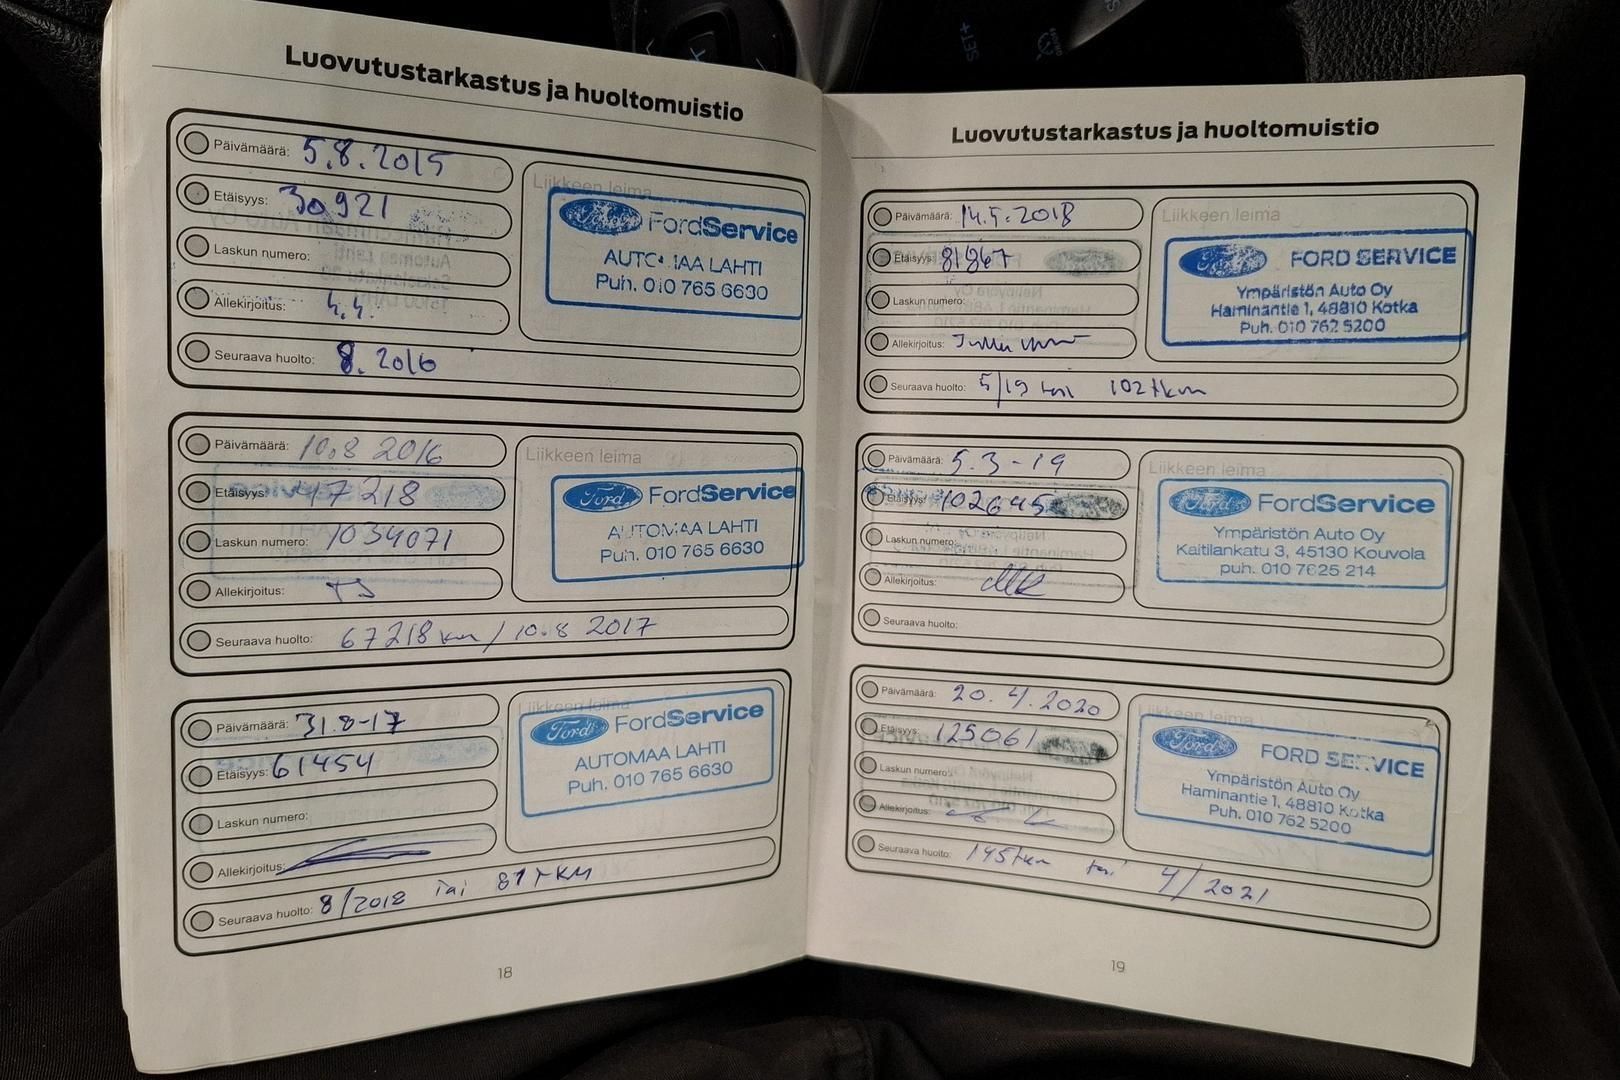 Luovutustarkastus ja huoltomuistio
Päivämäärä: 5.8.2015
Etäisyys: 30921
Laskun numero:
Allekirjoitus:
Seuraava huolto: 8.2016
Liikkeen leima
Ford FordService
LAHTI
Puh. 010 765 6630
Päivämäärä: 10.8 2016
Etäisyys: 47218
Laskun numero: 1034071
Allekirjoitus: TJ
Seuraava huolto: 67218 km / 10.8 2017
Liikkeen leima
Ford FordService
AUTOMAA LAHTI
Puh. 010 765 6630
Päivämäärä: 31.8-17
Etäisyys: 61454
Laskun numero:
Allekirjoitus:
Seuraava huolto: 8/2018 tai 81 tKM
Liikkeen leima
Ford FordService
AUTOMAA LAHTI
Puh. 010 765 6630
18
Luovutustarkastus ja huoltomuistio
Päivämäärä: 14.5.2018
Etäisyys: 81867
Laskun numero:
Allekirjoitus:
Seuraava huolto: 5/19 tai 102 tkm
Liikkeen leima
Ford FORD SERVICE
Ympäristön Auto Oy
Haminantie 1, 48810 Kotka
Puh. 010 762 5200
Päivämäärä: 5.3-19
Etäisyys: 102645
Laskun numero:
Allekirjoitus: MK
Seuraava huolto:
Liikkeen leima
Ford FordService
Ympäristön Auto Oy
Kaitilankatu 3, 45130 Kouvola
puh. 010 7625 214
Päivämäärä: 20.4.2020
Etäisyys: 125061
Laskun numero:
Allekirjoitus:
Seuraava huolto: 145 tkm tai 4/2021
Liikkeen leima
Ford FORD SERVICE
Ympäristön Auto Oy
Haminantie 1, 48810 Kotka
Puh. 010 762 5200
19
SET+